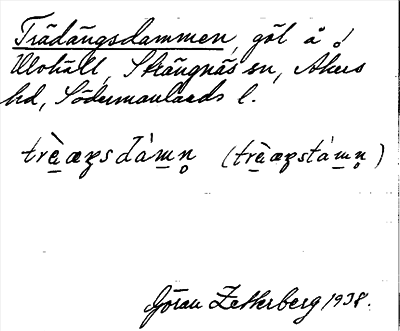 Trädängsdammen, göl å
Ulvhäll, Strängnäs sn, Åkers
hd, Södermanlands l.
trὲ̠æŋsdàm̠n̥ (trὲ̠æŋstàm̠n̥)
Göran Zetterberg 1938.